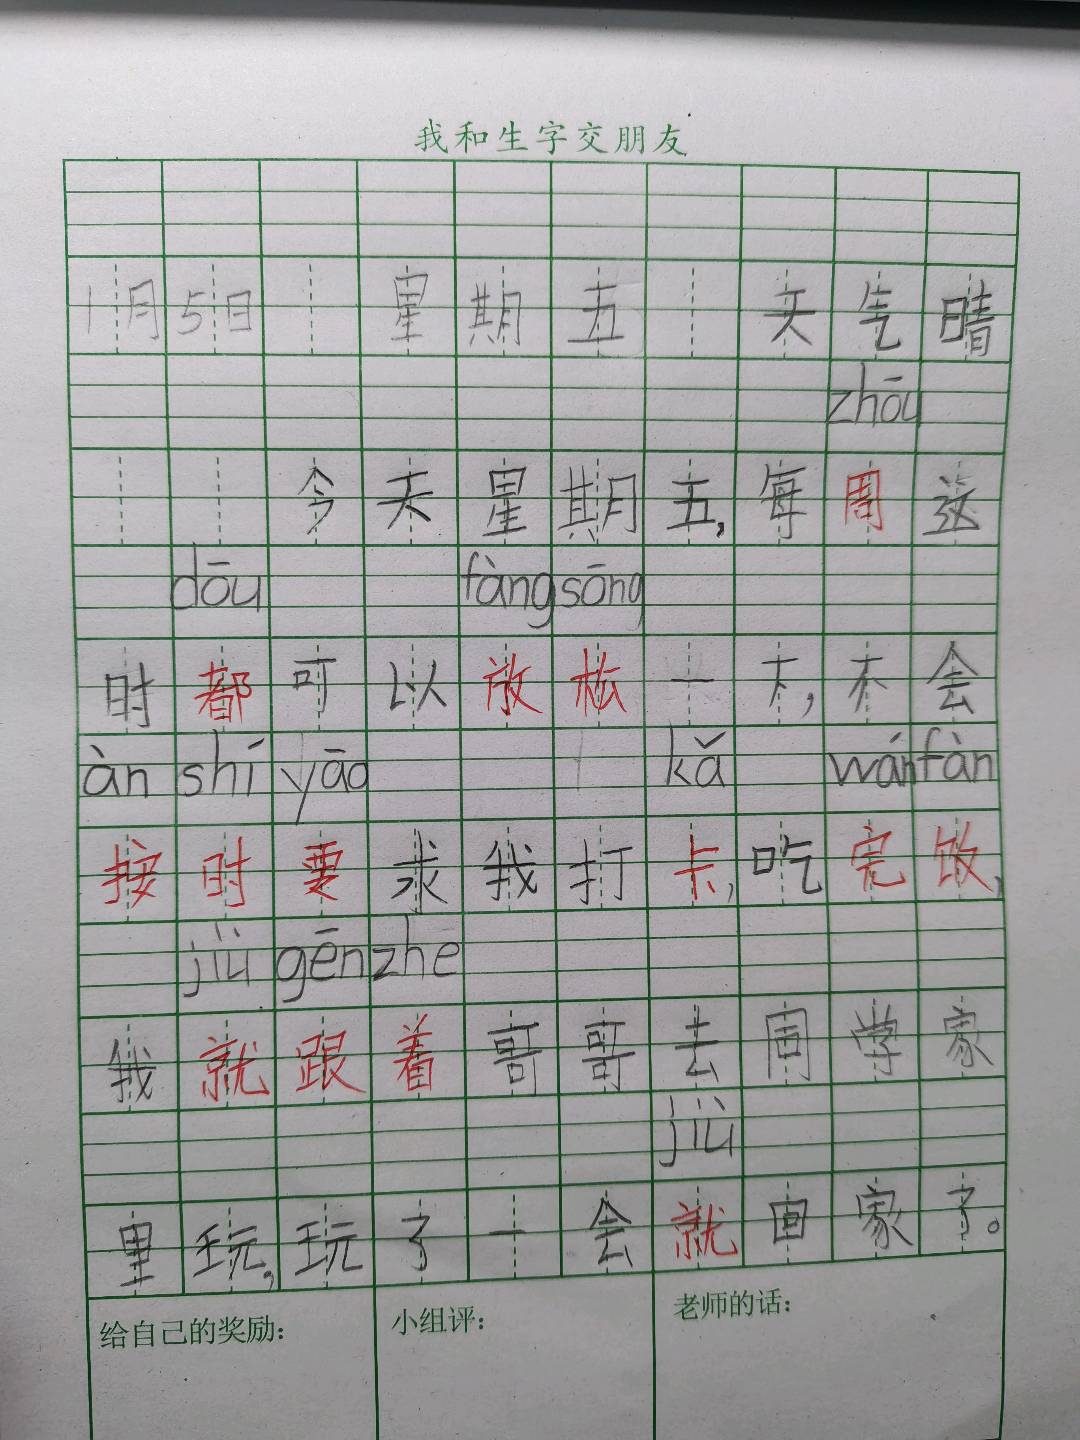 我和生字交朋友
1月5日 星期五 天气晴
zhōu
今天星期五,每周这
dōu fàng sōng
时都可以放松一下,不会
àn shí yāo kǎ wán fàn
按时要求我打卡,吃完饭,
jiù gēn zhe
我就跟着哥哥去同学家
jiù
里玩,玩了一会就回家了。
给自己的奖励: 小组评: 老师的话: